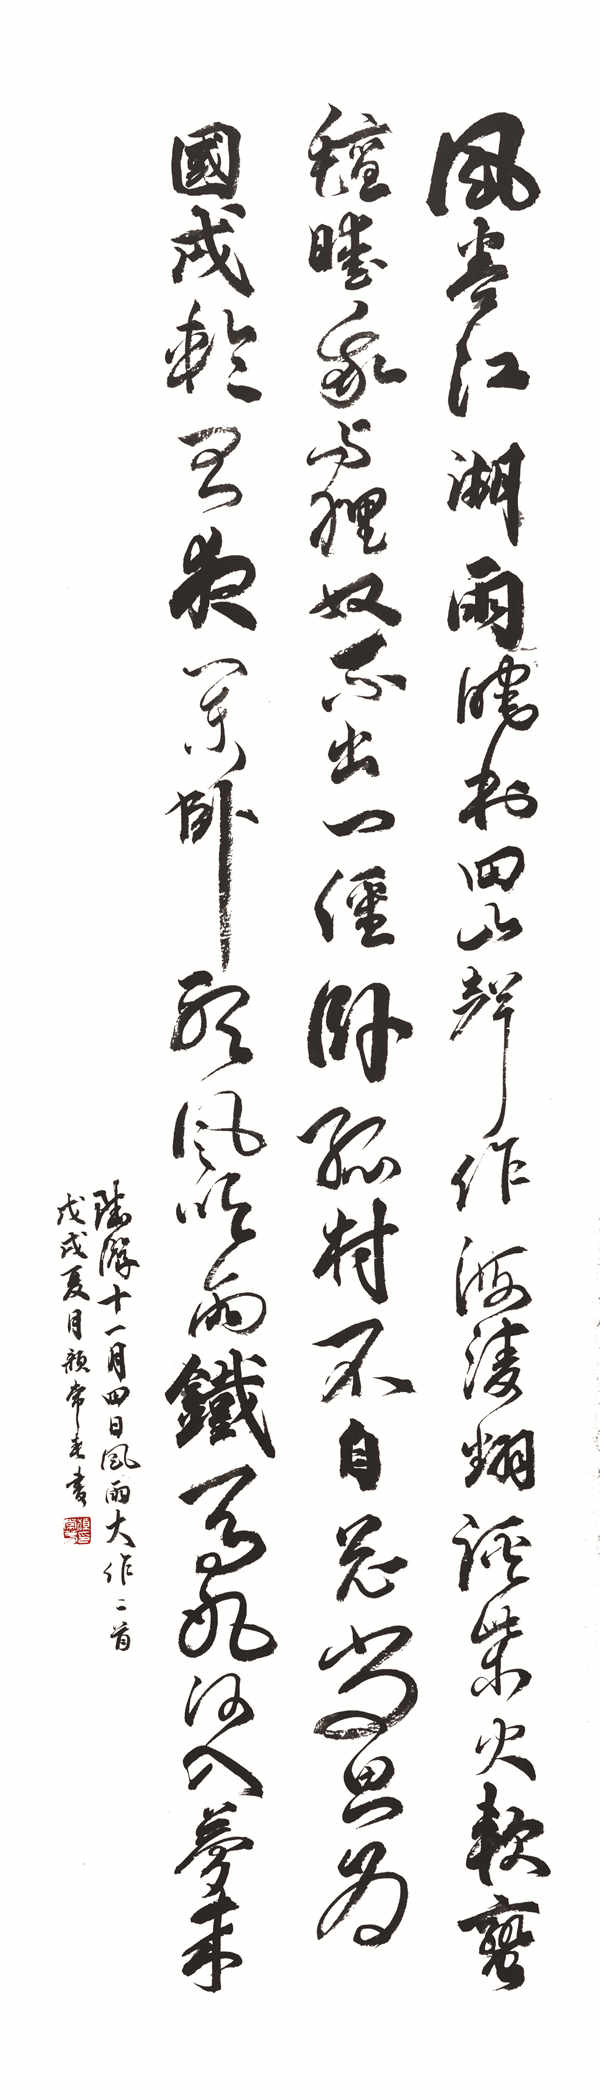 風卷江湖雨暗村四山聲作海濤翻溪柴火軟蠻
氈暖我與狸奴不出門僵臥孤村不自哀尚思為
國戍輪臺夜闌臥聽風吹雨鐵馬冰河入夢來
陸游十一月四日風雨大作二首
戊戌夏月常春書